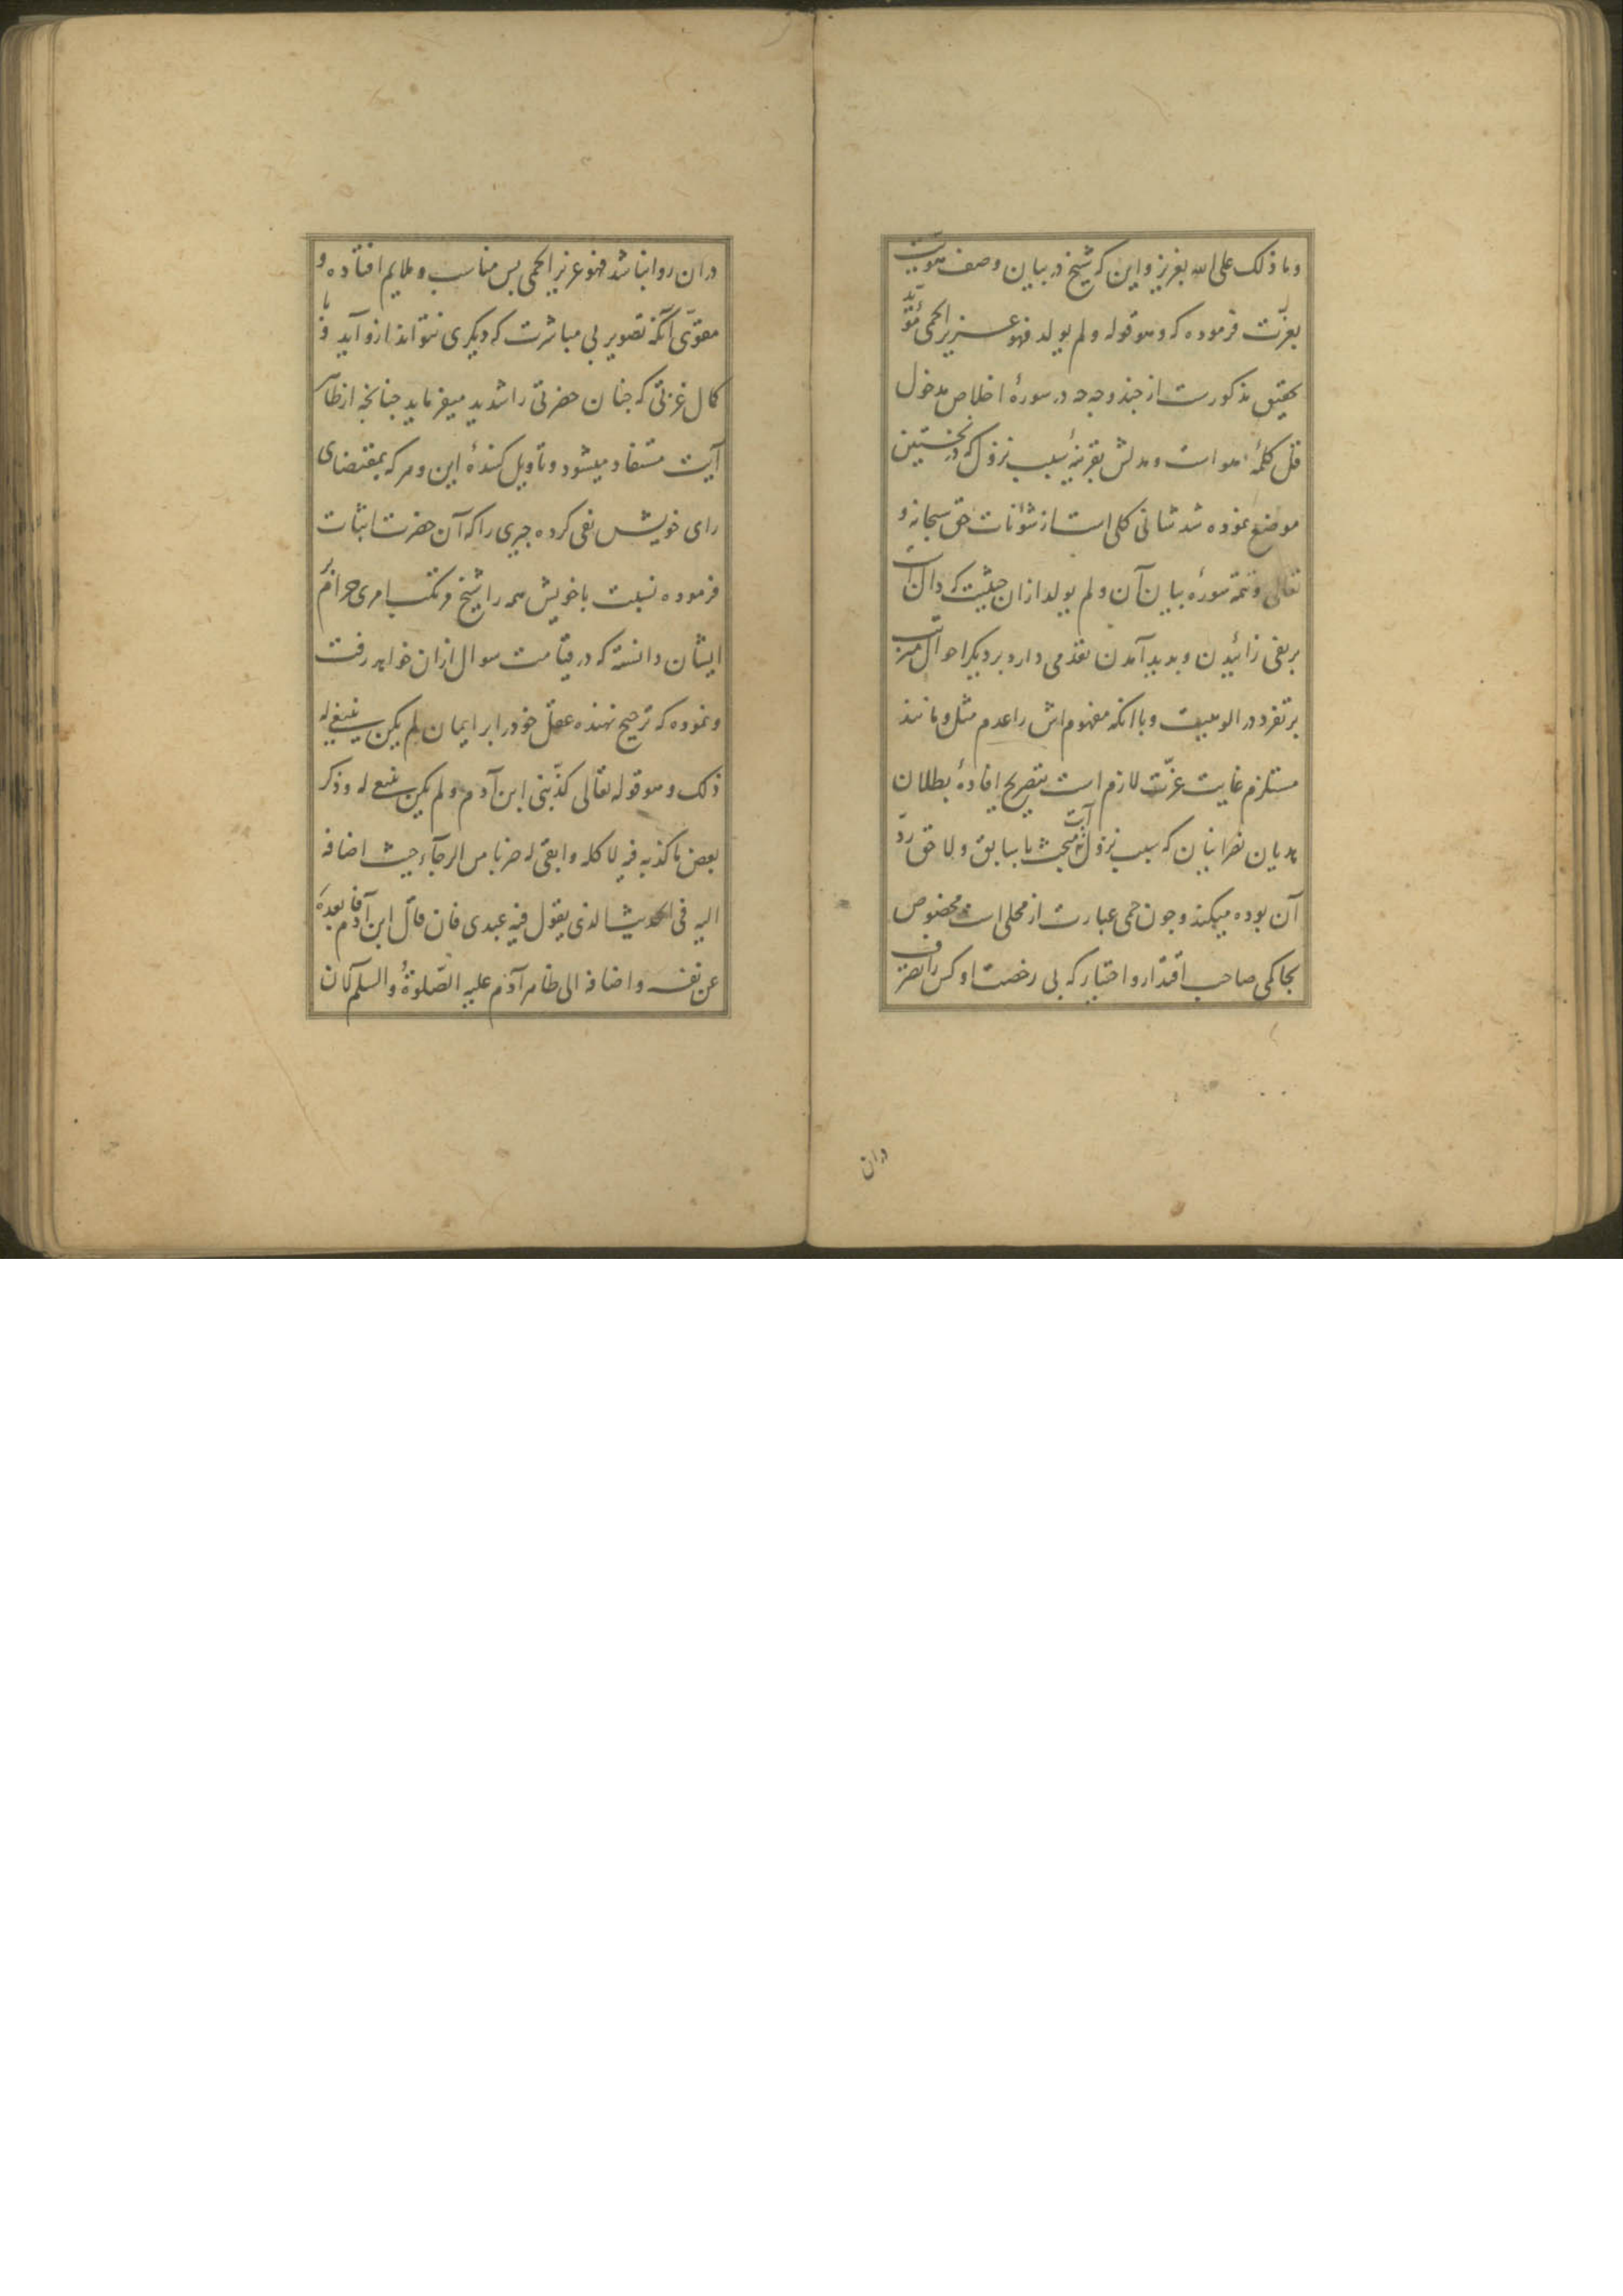 وما ذلک علی الله بعزیز و این که شیخ در بیان وصف هویت
بعزّت فرموده که و هو قوله و لم یولد فهو عزیز الحمی مؤیّد
تحقیق مذکورست از چند وجه چه در سورهٔ اخلاص مدخول
قل کلمهٔ هو است و مدلش بقرینهٔ سبب نزول که در نخستین
موضع نموده شد شانی کلی است از شؤنات حق سبحانه و
تعالی و تتمه سوره بیان آن و لم یولد ازان حیثیت که دال است
بر نفی زائیدن و پدید آمدن تقدمی دارد بر دیگر احوال مترتب
بر تفرد در الوهیت و با انکه مفهوم اش را عدم مثل و مانند
مستلزم غایت عزّت لازم است بتصریح افادهٔ بطلان
هذیان نصرانیان که سبب نزول آیت با سابق و لاحق ردّ
آن بوده میکند و چون حمی عبارت از محلی است مخصوص
بحاکمی صاحب اقتدار و اختیار که بی رخصت او کس را تصرف
دران
دران روا نباشد فهو عزیز الحمی بس مناسب و ملایم افتاده و
مقوّی آنکه تصویر بی مباشرت که دیگری نتواند ازو آید و با
کمال عزتی که چنان حضرتی را شدید میفرماید چنانچه از ظاهر
آیت مستفاد میشود و تاویل کنندهٔ این و هر که بمقتضای
رای خویش نفی کرده چیزی را که آن حضرت اثبات
فرموده نسبت با خویش همه را شیخ مرتکب امری حرام
ایشان دانسته که در قیامت سوال ازان خواهد رفت
و نموده که ترجیح نهنده عقل خود را بر ایمان لم یکن ینبغی له
ذلک و هو قوله تعالی کذّبنی ابن آدم و لم یکن ینبغی له و ذکر
بعض ما کذبه فیه لا کله و ابقی له ضربا من الرجاء حیث اضافه
الیه فی الحدیث الذی یقول فیه عبدی فان قال ابن آدم بعده
عن نفسه و اضافه الی ظاهر آدم علیه الصّلوة و السلم لان